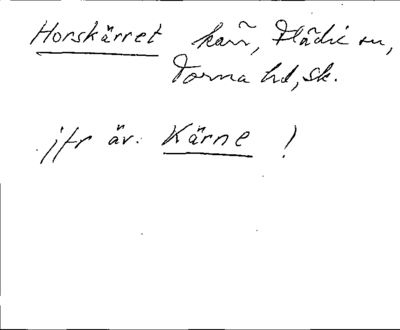 Horskärret kärr, Flädie sn,
Torna hd, sk.
jfr äv. Kärne !